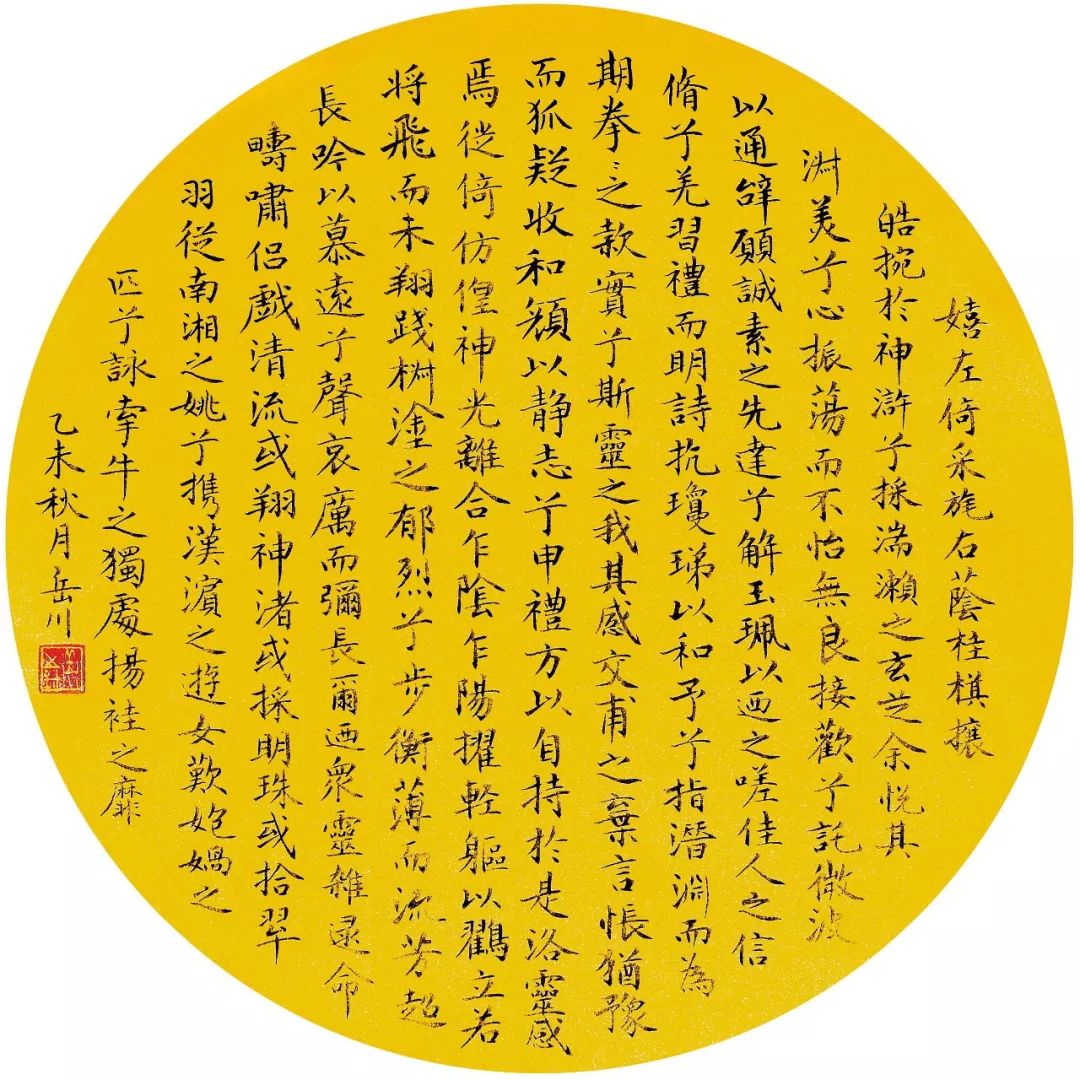 嬉左倚采旄右蔭桂棋攘
皓捥於神滸兮採湍瀨之玄芝余悅其
淑美兮心振蕩而不怡無良接歡兮託微波
以通辭願誠素之先達兮解玉珮以迊之嗟佳人之信
脩兮羌習禮而明詩抗瓊珶以和予兮指潛淵而為
期拳〻之款實兮斯靈之我其感交甫之棄言悵猶豫
而狐疑收和顏以靜志兮申禮方以自持於是洛靈感
焉徙倚仿偟神光離合乍陰乍陽擢軽軀以鸛立若
将飛而未翔踐椒塗之郁烈兮步衡薄而流芳超
長吟以慕遠兮聲哀厲而彌長爾迺衆靈雜遝命
疇嘯侶戲清流或翔神渚或採明珠或拾翠
羽從南湘之姚兮携漢濱之遊女歎匏媧之
匹兮詠牽牛之獨處揚袿之靡
乙未秋月岳川